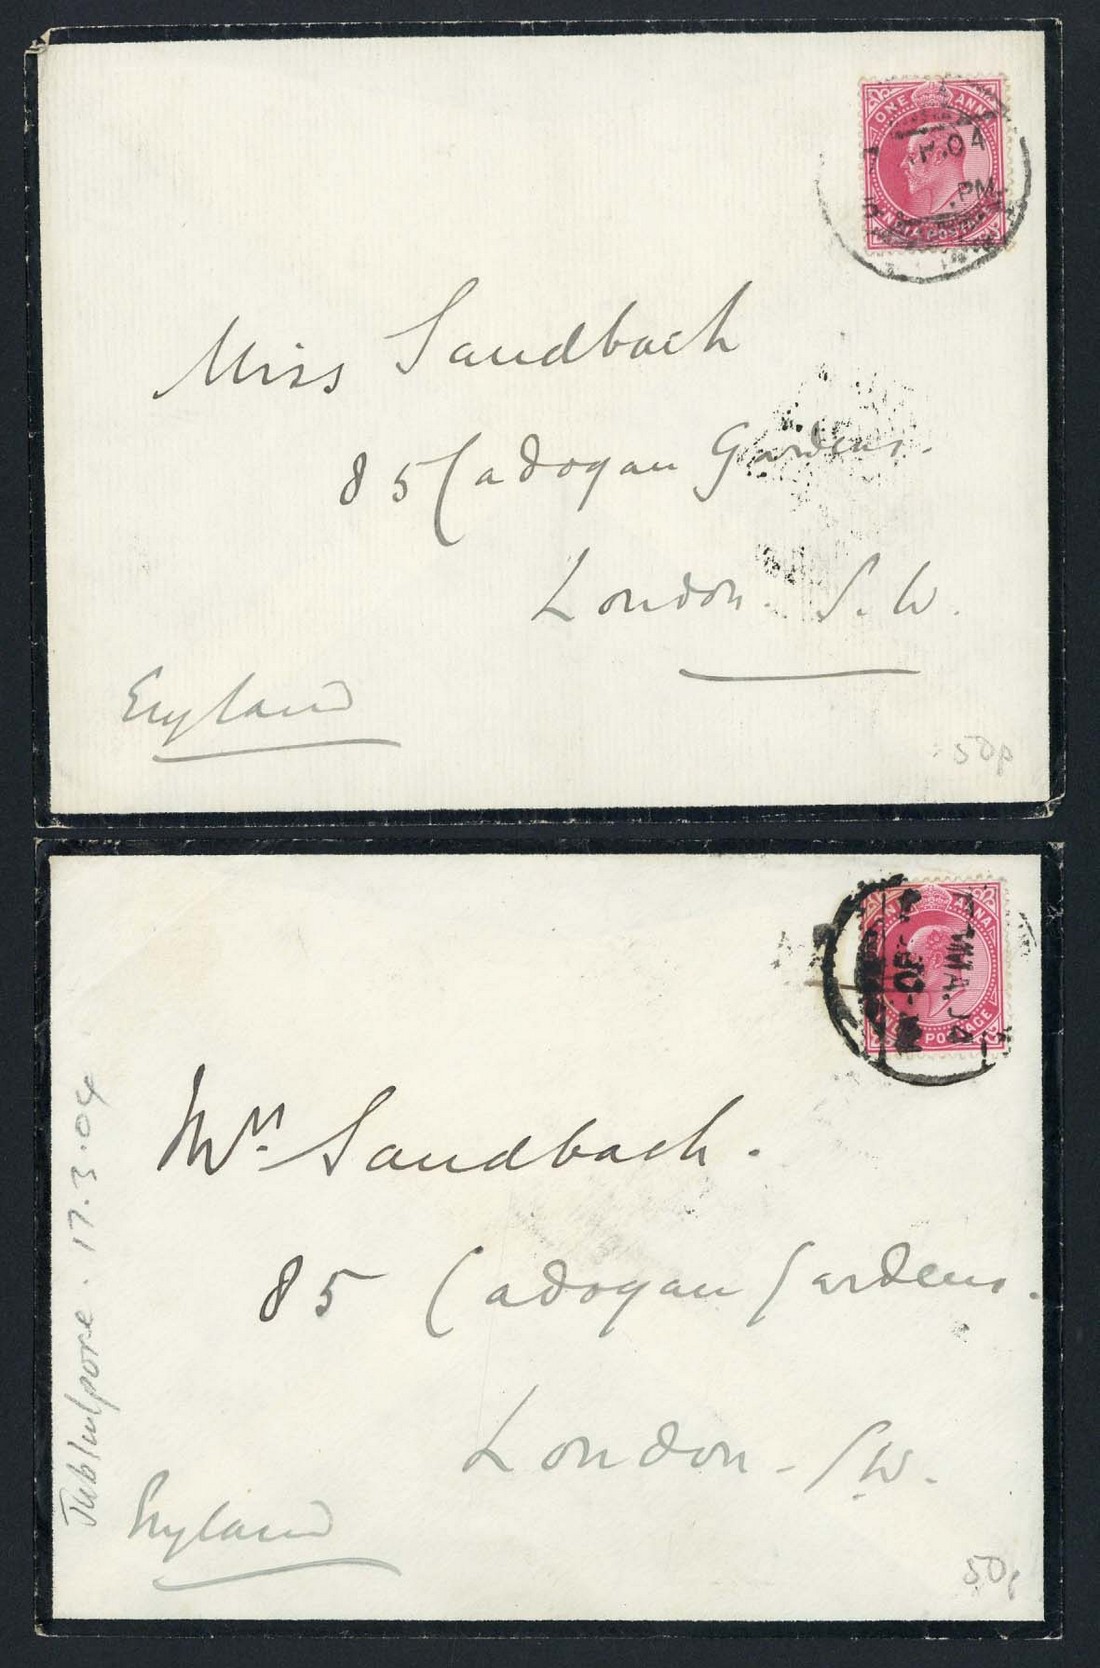 ONE ANNA
.04
.PM
INDIA POSTAGE
Miss Sandbach
85 Cadogan Gardens.
London. S.W.
England
50p
ANNA
POSTAGE
Mrs. Sandbach.
85 Cadogan Gardens.
London - S.W.
England
Jubbulpore. 17.3.04
50p